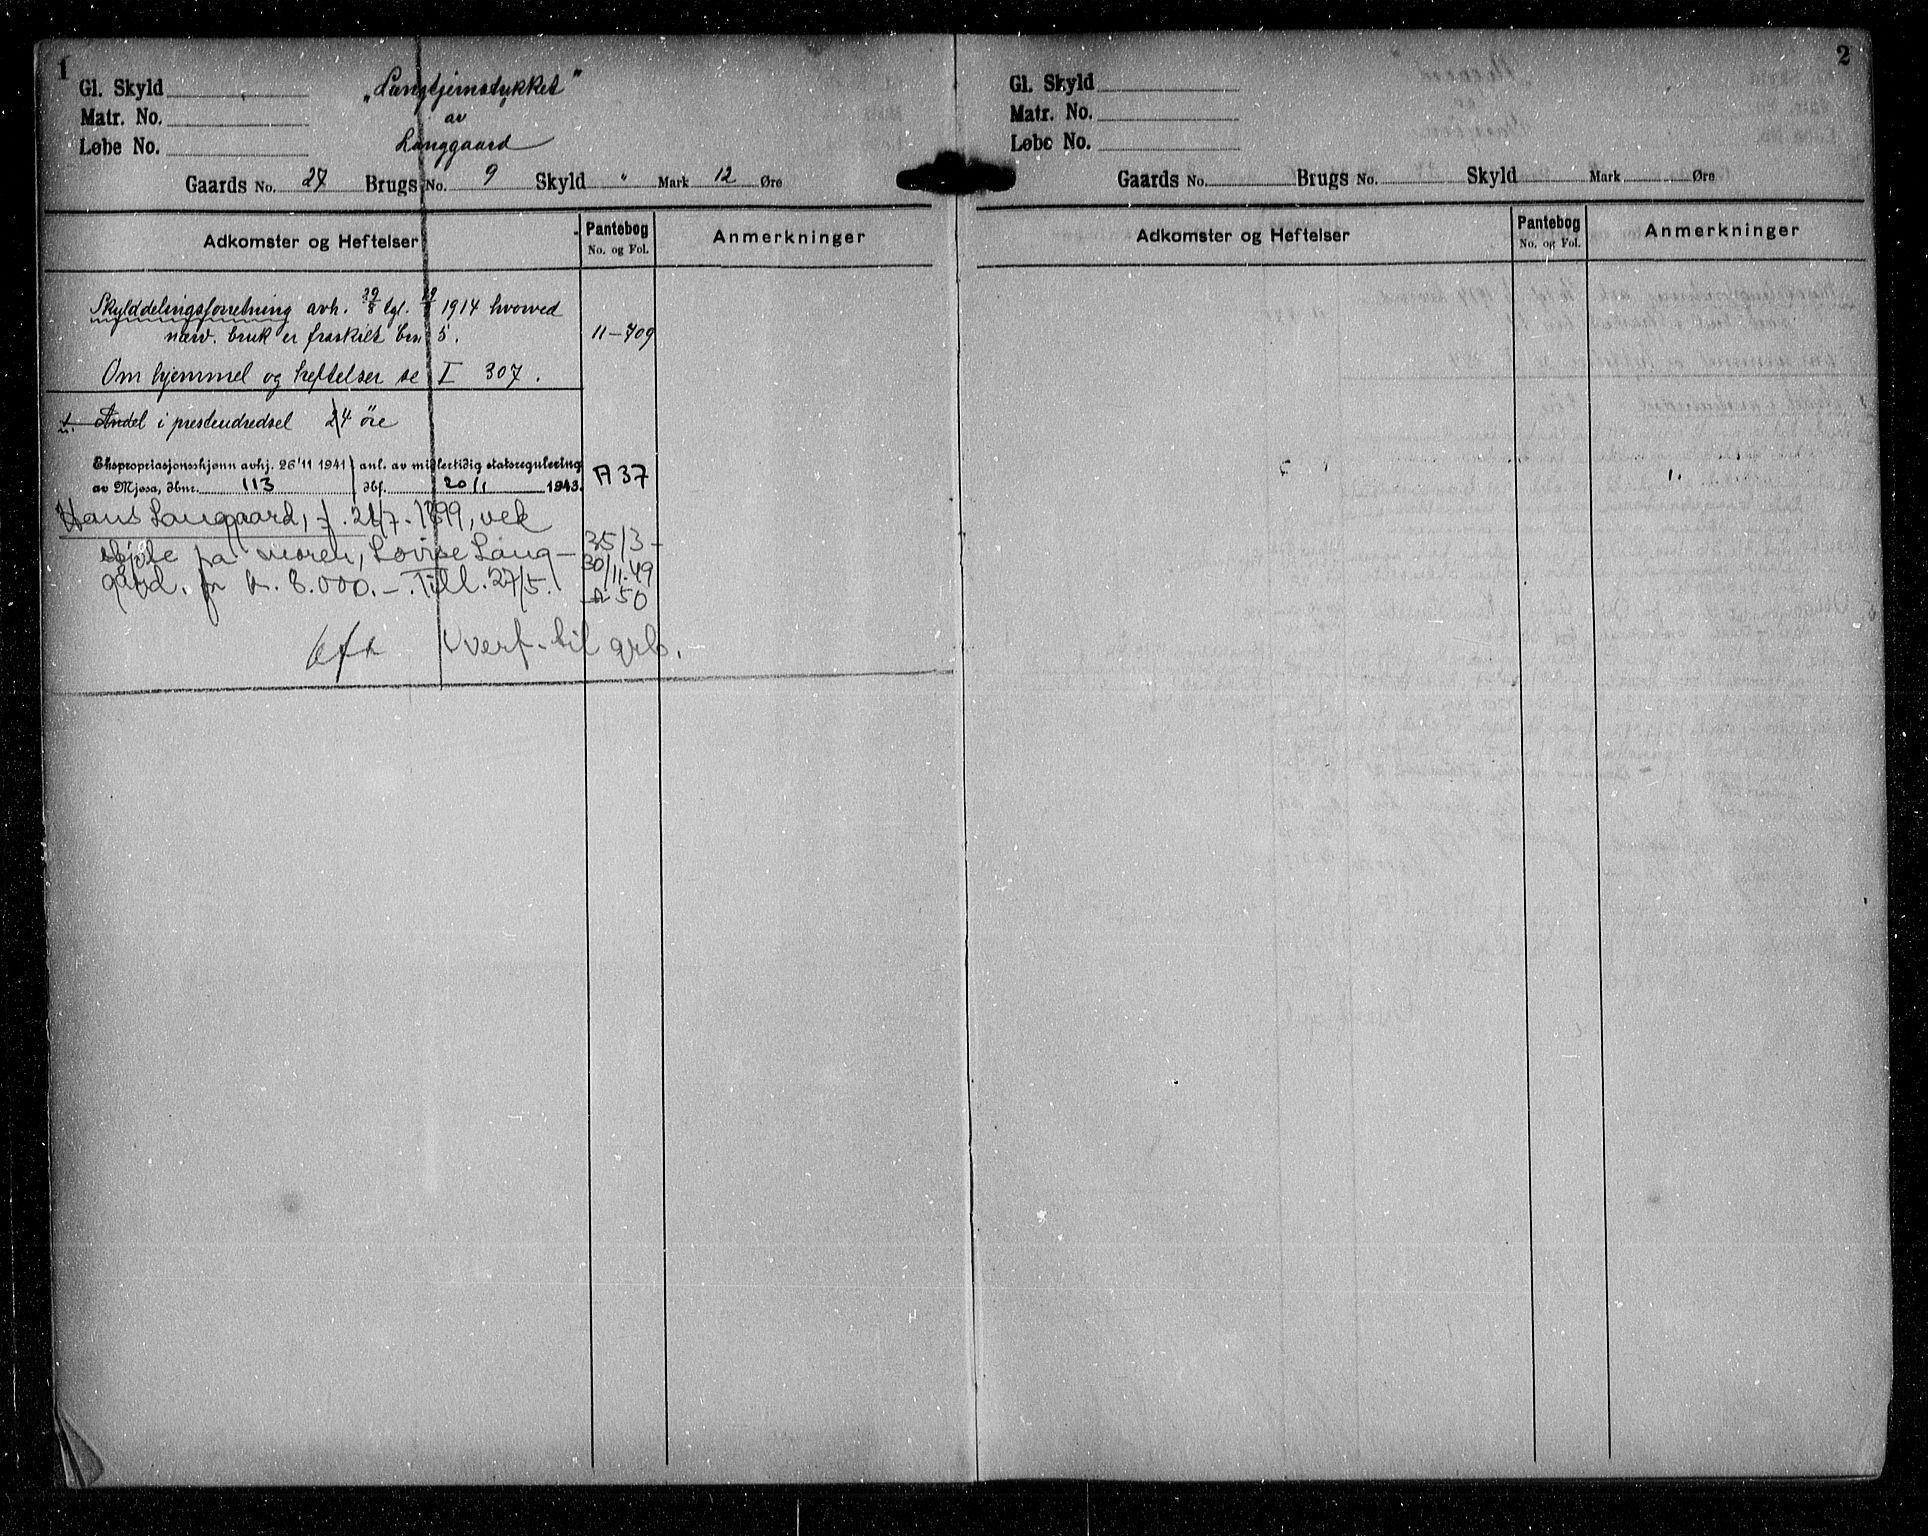 1
Gl. Skyld
Matr. No.
Løbe No.
„Langtjernstykket"
av
Langgaard
Gaards No. 27 Brugs No. 9 Skyld " Mark 12 Øre
Adkomster og Heftelser
Pantebog
No. og Fol.
Anmerkninger
Skylddelingsforretning avh. tgl. 1914 hvorved
nærv. bruk er fraskilt brn 5. 11-709
Om hjemmel og heftelser se I 307.
1. Andel i prestendredsel 24 øre
Ekspropriasjonsskjønn avhj. 26/11 1941 anl. av midlertidig statsregulering
av Mjøsa, dbnr. 113 dbf. 20/1 1943. A 37
Hans Langgaard, f. 1899, ved
skjøte på moren, Lovise Lang- 35/3-
gård. for kr. 8.000.-. Till. 27/5. 30/11-49
50
Overf. til grb.
2
Gl. Skyld
Matr. No.
Løbe No.
Gaards No. Brugs No. Skyld Mark Øre
Adkomster og Heftelser
Pantebog
No. og Fol.
Anmerkninger